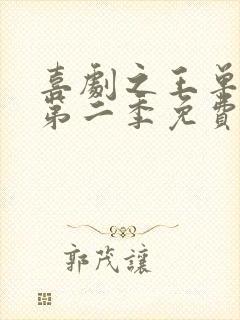 喜劇之王單
第二季免費
郭茂讓